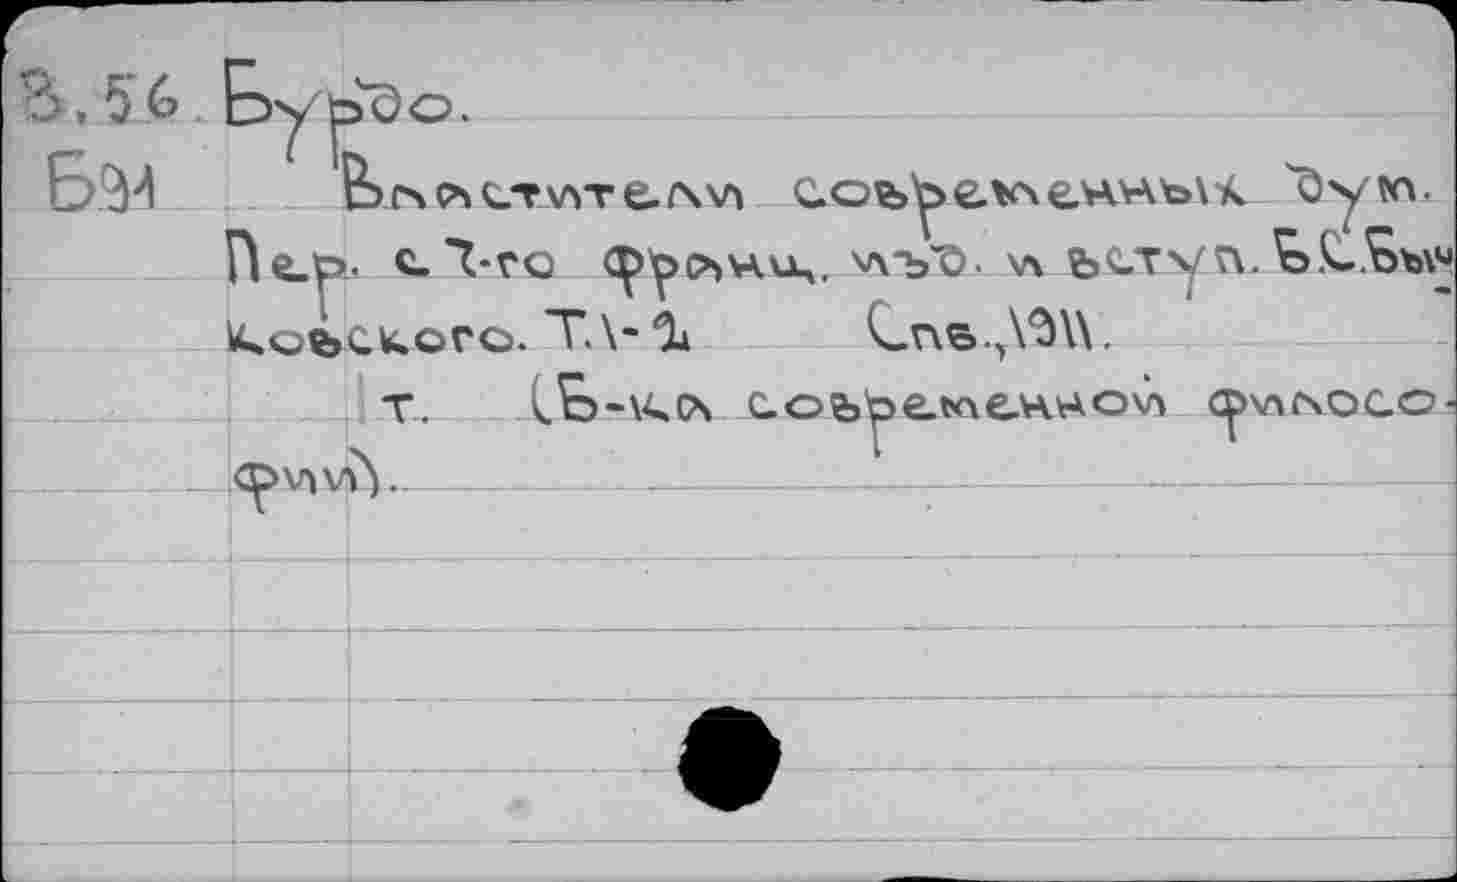 В.56. Бурдо.
Б91 Властители современных дум.
Пер. с 7-го франц. изд. и вступ. Б.С.Быч-
ковского. Т.1-2 Спб., 1911.
т. (Б-ка современной филосо-
фии).